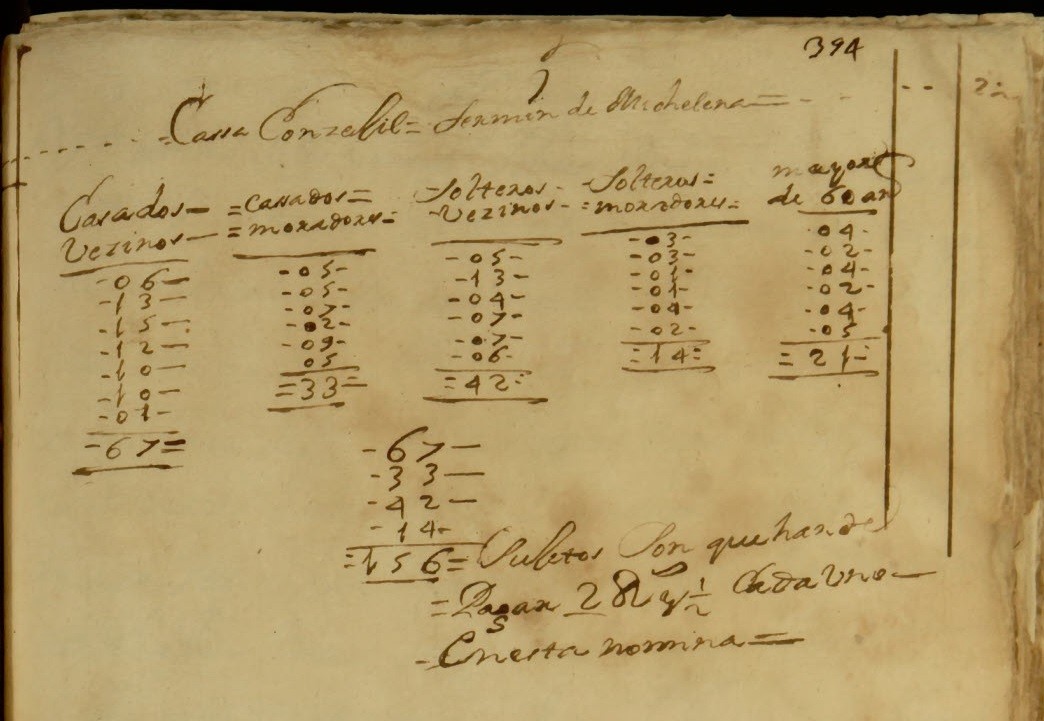 394
Cassa Conzegil= fermin de Michelena=
Casados– =cassados= -Solteros- -Solteros= mayores
Vezinos– =moradores= -Vezinos- =moradores= de 60 an
-06- -05- -05- -03- -04-
-13- -05- -13- -03- -02-
-15- -07- -04- -01- -04-
-12- -02- -07- -01- -02-
-10- -09- -07- -04- -04-
-10- 05 -06- -02- -05
-01- =33= =42= =14= =21-
-67=
-67-
-33-
-42-
-14-
=156= Subetos Son que han de
=Pagar 2 Rs y 1/2 Cada Vno–
-Enesta nomina=